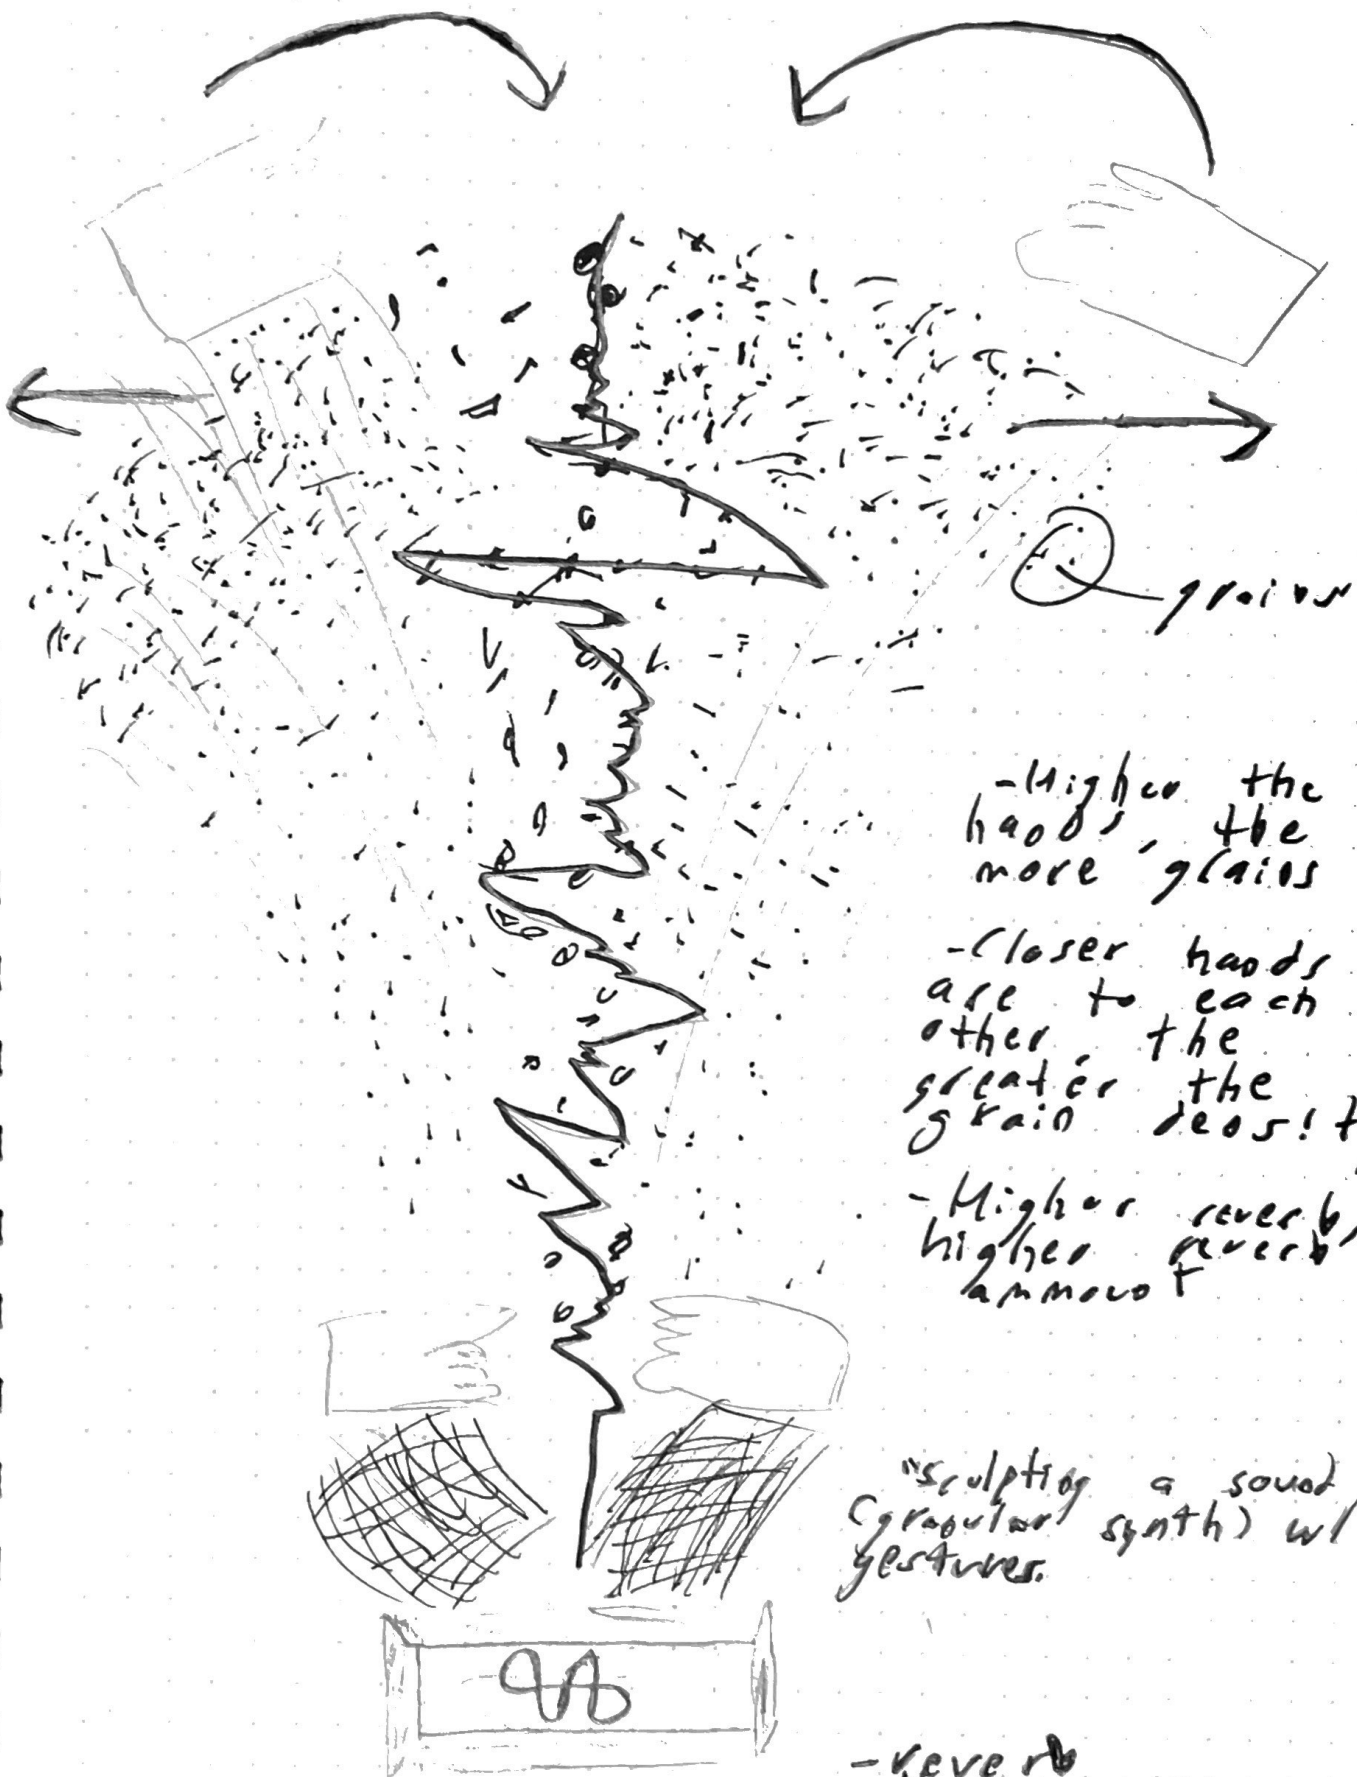 grains
-Higher the
hands, the
more grains
-Closer hands
are to each
other, the
greater the
grain densit
-Higher reverb,
higher reverb
ammount
"sculpting a sound
(granular synth) w/
gestures.
-Reverb